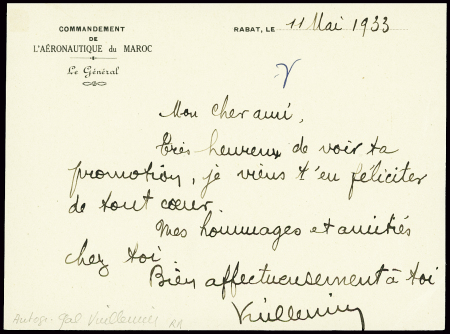 COMMANDEMENT
DE
L'AÉRONAUTIQUE du MAROC
Le Général
RABAT, LE 11 Mai 1933
Mon cher ami,
Très heureux de voir ta
promotion, je viens t'en féliciter
de tout cœur.
Mes hommages et amitiés
chez toi.
Bien affectueusement à toi
Vuillemin
Autogr. gal Vuillemin